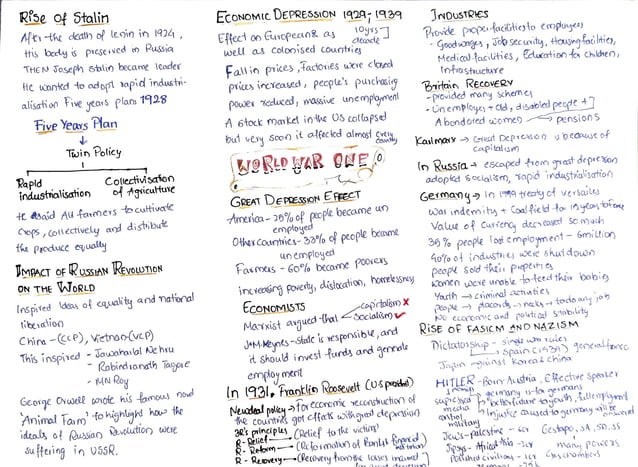 Rise of Stalin
After the death of Lenin in 1924,
His body is preserved in Russia
THEN Joseph Stalin became leader
He wanted to adopt rapid industri-
alisation Five years plans 1928
Five Years Plan
Twin Policy
Rapid industrialisation
Collectivisation of Agriculture
He said All farmers to cultivate
crops, collectively and distribute
the produce equally
IMPACT OF RUSSIAN REVOLUTION
ON THE WORLD
Inspired Ideas of equality and national
liberation
China - (CCP), Vietnam-(VCP)
This inspired - Jawaharlal Nehru
- Robindranath Tagore
- MN Roy
George Orwell wrote his famous novel
'Animal Farm' to highlight how the
ideals of Russian Revolution were
suffering in USSR.
ECONOMIC DEPRESSION 1929-1939
10yrs → decade
Effect on European & as
well as colonised countries
Fall in prices, Factories were closed
prices increased, people's purchasing
power reduced, massive unemployment
A stock market in the US collapsed
but very soon it affected almost every country
WORLD WAR ONE
GREAT DEPRESSION EFFECT
America - 25% of people became un
employed
Other countries - 33% of people became
unemployed
Farmers - 60% became poorers
increasing poverty, dislocation, homelessness
ECONOMISTS
Marxist argued that
capitalism ✗
Socialism ✓
JM Keynes - State is responsible, and
it should invest funds and generate
employment
In 1931, Franklin Roosevelt (US president)
New deal policy → For economic reconstruction of
the countries got effects with great depression
3R's principles
R - Relief → (Relief to the victims)
R - Reform → (Reformation of
R - Recovery → (Recovery from the losses incurred
INDUSTRIES
Provide proper facilities to employees
- Good wages, Job security, Housing facilities,
Medical facilities, Education for children,
Infrastructure
Britain RECOVERY
- provided many schemes
- Unemployed + Old, disabled people +
Abandoned women → pensions
Karlmarx → Great Depression is because of
capitalism
In Russia → escaped from great depression
adopted socialism, rapid industrialisation
Germany → in 1919 treaty of versailes
War indemnity + Coalfield for 15 years to
Value of currency decreased so much
people lost employment - 6 million
40% of industries were shut down
people sold their properties
women were unable to feed their babies
Youth → criminal activities
people → placards → necks → to do any job
No economic and political stability
RISE OF FASICM AND NAZISM
Dictatorship - single man rules
→ Spain (1939) general franco
Japan against Korea & china
HITLER - Born - Austria, Effective speaker
germany is to germans
supress media control military
better future to youth, full employment
Injustice caused to germany will be
Jews - palestine - Gestapo, SA, SD, SS
many powers